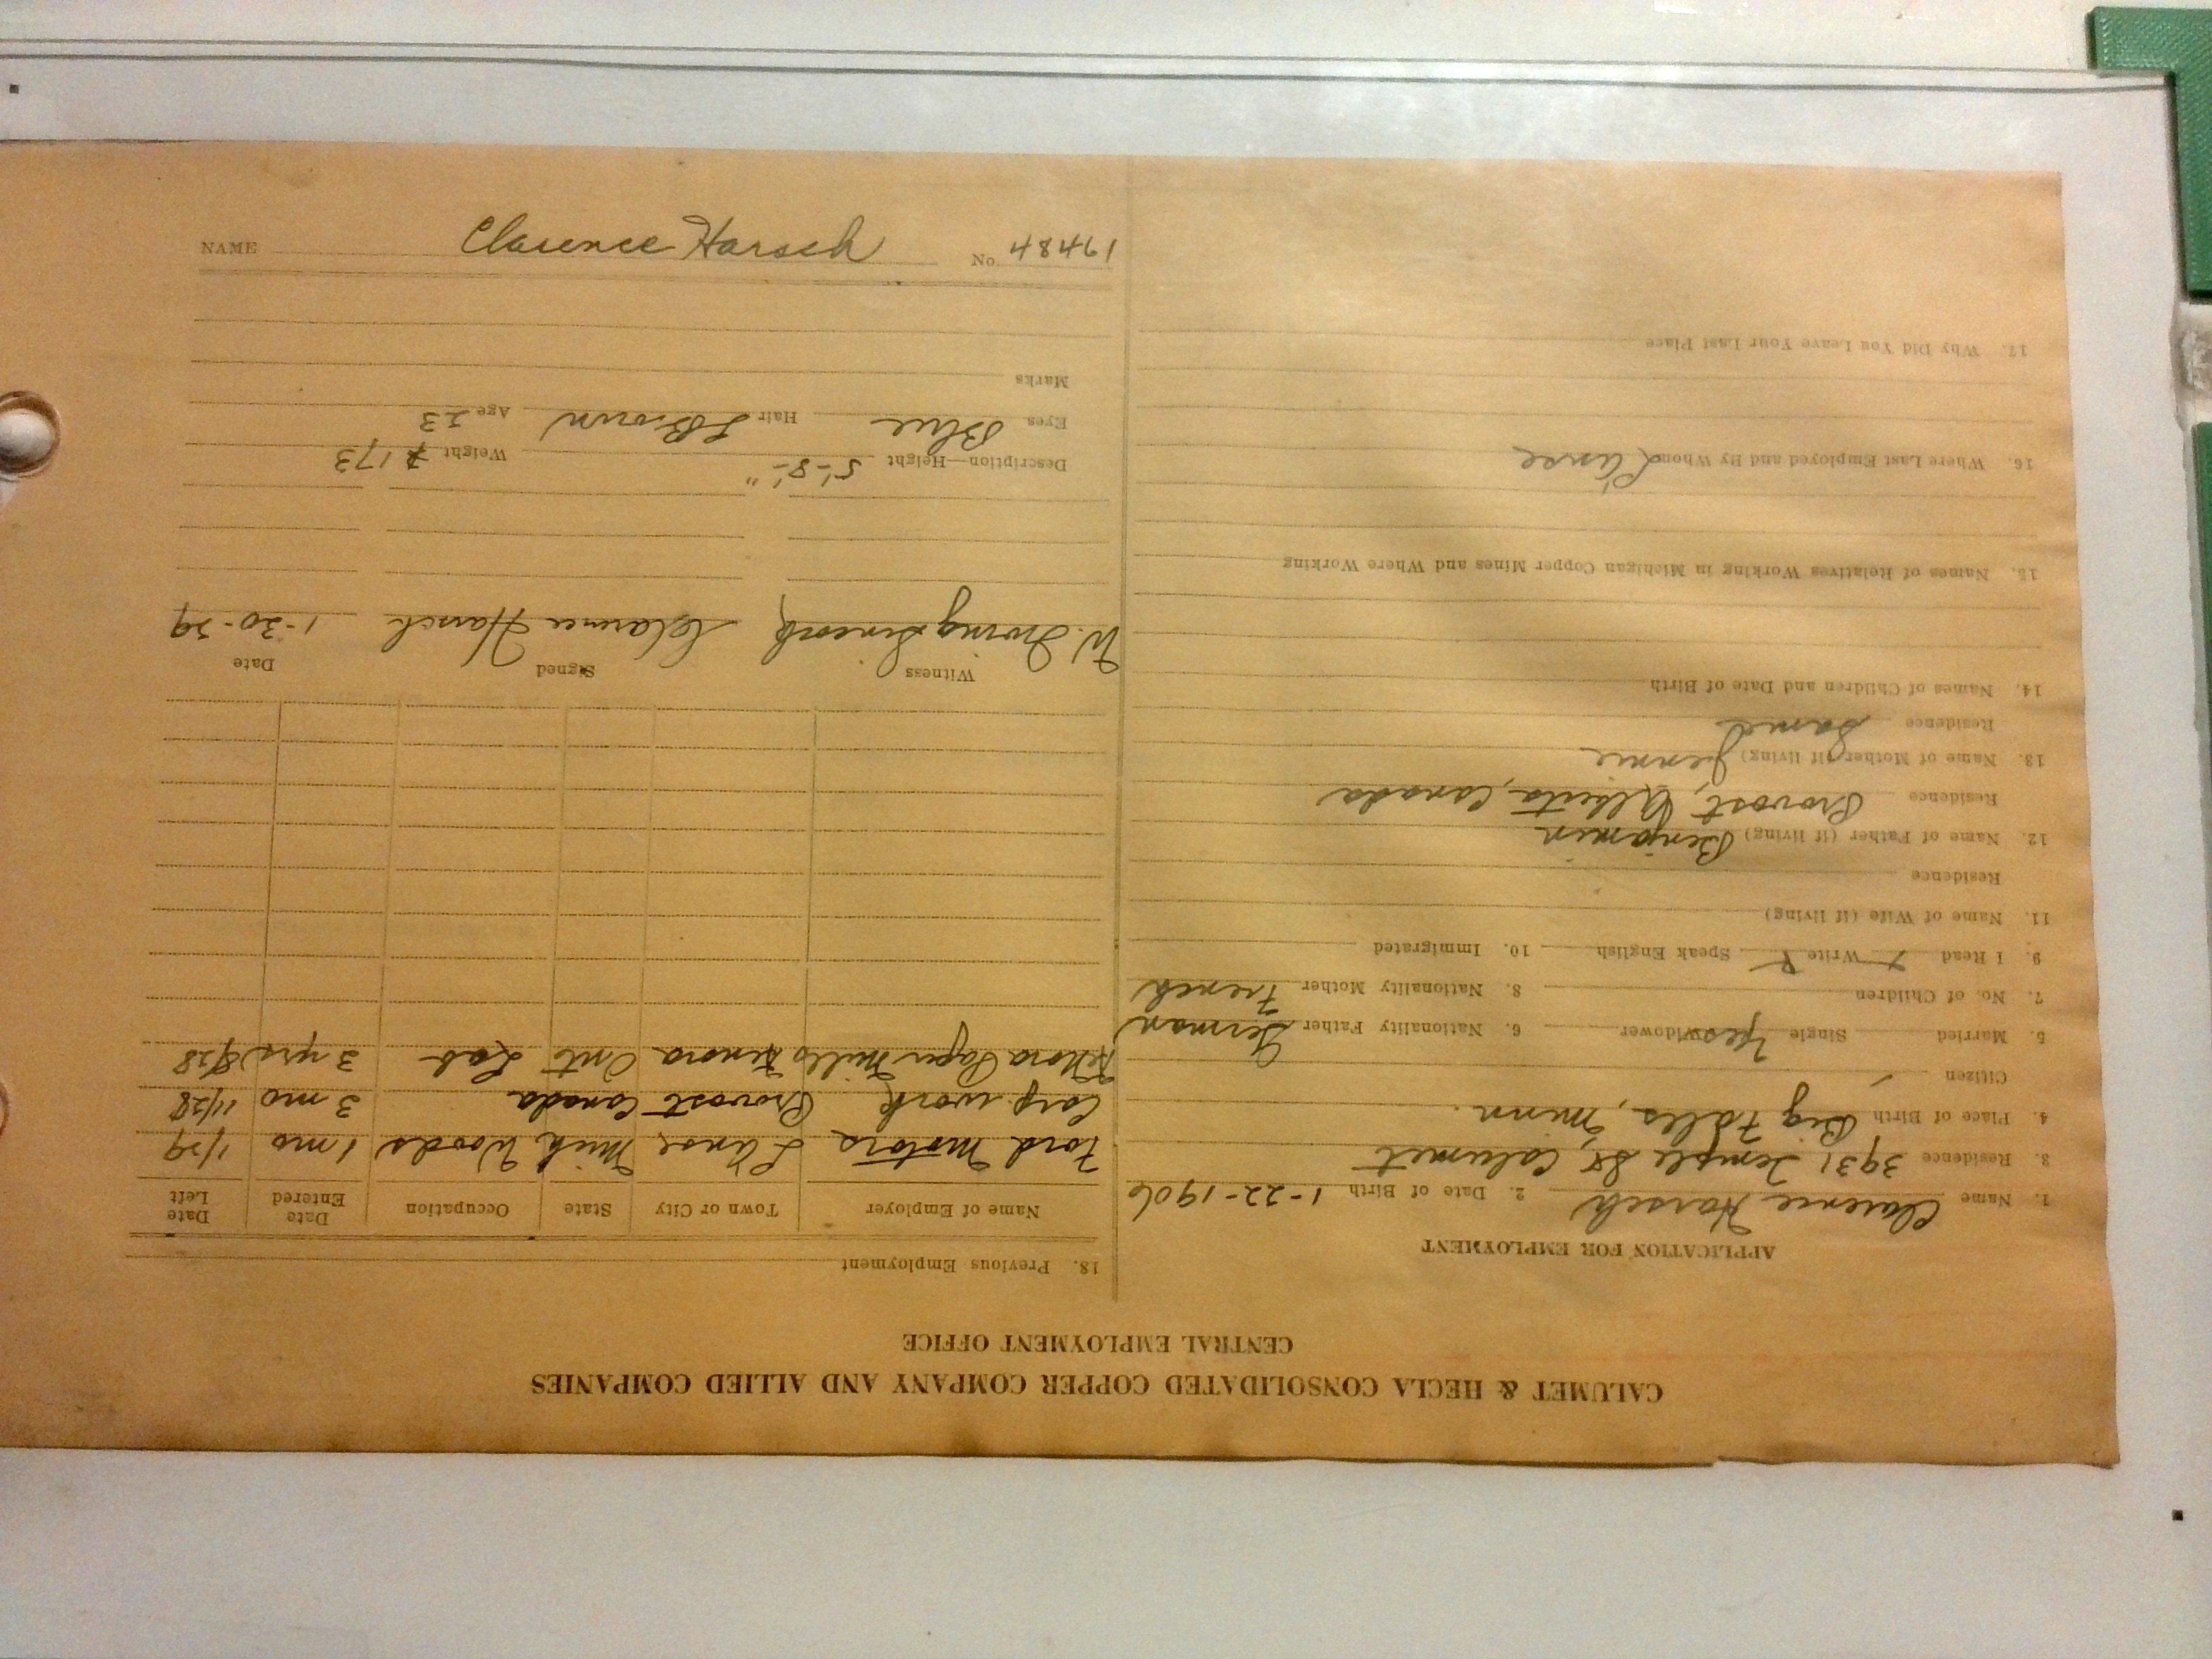 CALUMET & HECLA CONSOLIDATED COPPER COMPANY AND ALLIED COMPANIES
CENTRAL EMPLOYMENT OFFICE
APPLICATION FOR EMPLOYMENT
1. Name Clarence Harsch 2. Date of Birth 1-22-1906
3. Residence 3931 Temple St, Calumet
4. Place of Birth Big Falls, Minn.
Citizen
5. Married Single Yes Widower 6. Nationality Father German
7. No. of Children 8. Nationality Mother French
9. I Read Write Speak English 10. Immigrated
11. Name of Wife (if living)
Residence
12. Name of Father (if living) Benjamin
Residence Provost, Alberta, Canada
13. Name of Mother (if living) Jennie
Residence Same
14. Names of Children and Date of Birth
15. Names of Relatives Working in Michigan Copper Mines and Where Working
16. Where Last Employed and By Whom L'anse
17. Why Did You Leave Your Last Place
18. Previous Employment
Name of Employer Town or City State Occupation Date Entered Date Left
Ford Motors L'Anse Mich Woods 1 mo 1/29
Carp. work Provost Canada 3 mo 11/28
Kenora Paper Mills Kenora Ont Lab 3 yrs 8/28
Witness Signed Date
W. Irving Clarence Harsch 1-30-29
Description—Height 5'-8" Weight 173
Eyes Blue Hair L Brown Age 23
Marks
NAME Clarence Harsch
No. 19484